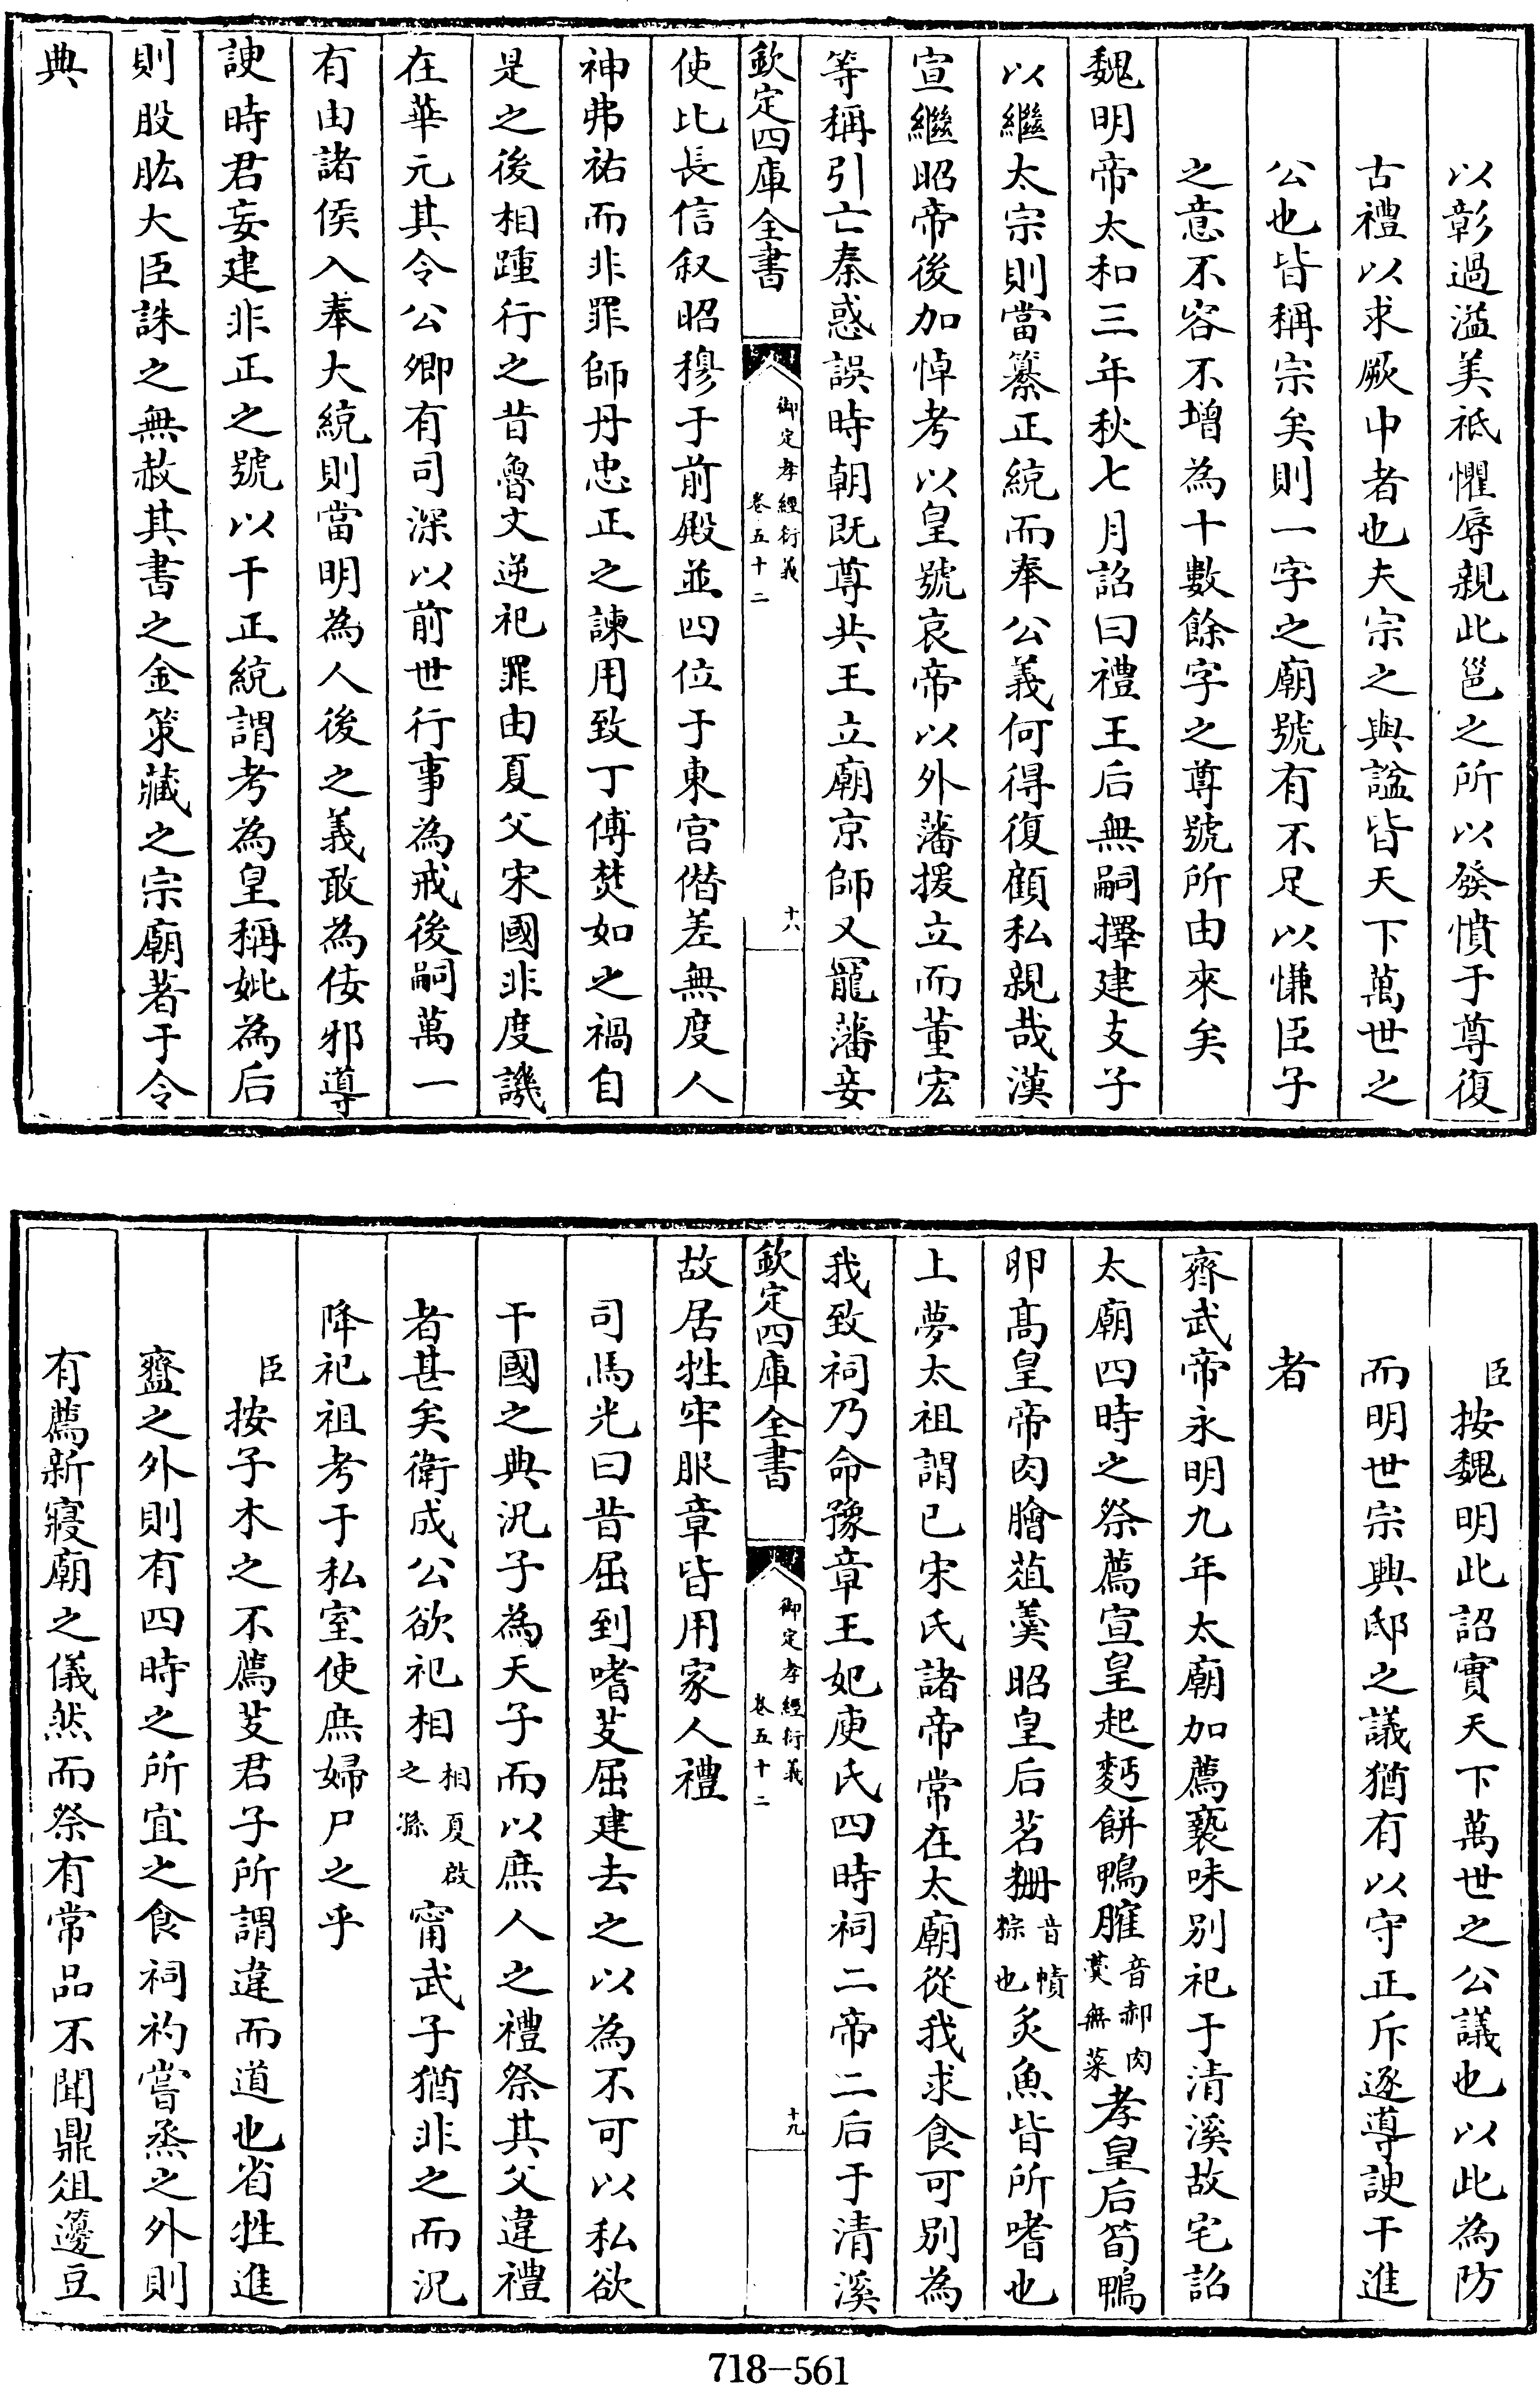 以彰過溢美祗懼辱親此邕之所以發憤于尊復
古禮以求厥中者也夫宗之與諡皆天下萬世之
公也皆稱宗矣則一字之廟號有不足以慊臣子
之意不容不增為十數餘字之尊號所由來矣
魏明帝太和三年秋七月詔曰禮王后無嗣擇建支子
以繼太宗則當纂正統而奉公義何得復顧私親哉漢
宣繼昭帝後加悼考以皇號哀帝以外藩援立而董宏
等稱引亡秦惑誤時朝既尊共王立廟京師又寵藩妾
欽定四庫全書
御定孝經衍義
卷五十二
十八
使比長信叙昭穆于前殿並四位于東宫僭差無度人
神弗祐而非罪師丹忠正之諫用致丁傅焚如之禍自
是之後相踵行之昔魯文逆祀罪由夏父宋國非度譏
在華元其令公卿有司深以前世行事為戒後嗣萬一
有由諸侯入奉大統則當明為人後之義敢為佞邪導
諛時君妄建非正之號以干正統謂考為皇稱妣為后
則股肱大臣誅之無赦其書之金策藏之宗廟著于令
典
臣按魏明此詔實天下萬世之公議也以此為防
而明世宗興邸之議猶有以守正斥逐導諛干進
者
齊武帝永明九年太廟加薦褻味别祀于清溪故宅詔
太廟四時之祭薦宣皇起麪餅鴨臛音郝肉羹無菜孝皇后筍鴨
卵髙皇帝肉膾葅羮昭皇后茗粣音幘粽也炙魚皆所嗜也
上夢太祖謂已宋氏諸帝常在太廟從我求食可别為
我致祠乃命豫章王妃庾氏四時祠二帝二后于清溪
欽定四庫全書
御定孝經衍義
卷五十二
十九
故居牲牢服章皆用家人禮
司馬光曰昔屈到嗜芰屈建去之以為不可以私欲
干國之典況子為天子而以庶人之禮祭其父違禮
者甚矣衛成公欲祀相相夏啟之孫甯武子猶非之而況
降祀祖考于私室使庶婦尸之乎
臣按子木之不薦芰君子所謂違而道也省牲進
齍之外則有四時之所宜之食祠礿嘗烝之外則
有薦新寢廟之儀然而祭有常品不聞鼎俎籩豆
718-561